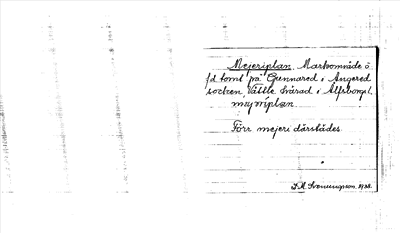 Mejeriplan. Markområde å
f.d. tomt på Gunnared i Angered
socken, Vättle härad i Älfsborgs l.
mejeriplan.
Förr mejeri därstädes.
1938.